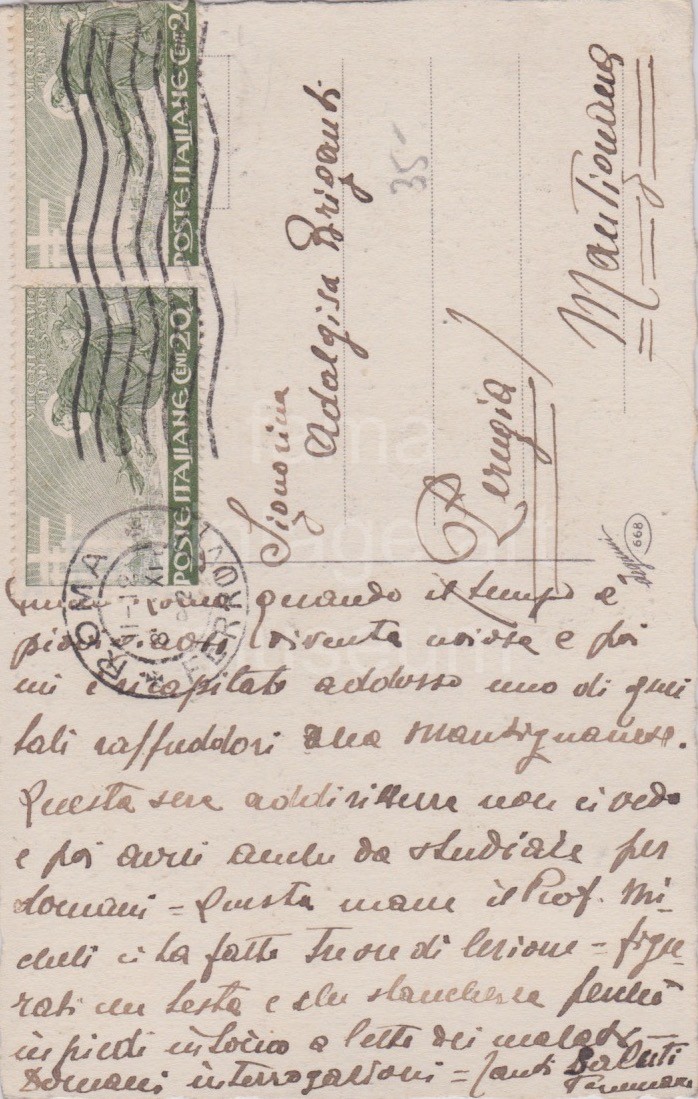 POSTE ITALIANE CENT 20
POSTE ITALIANE CENT 20
ROMA
FERROVIA
Signorina
Adalgisa Briganti
Perugia
Mantignana
35-
668
fama
vintage art
museum
quando il tempo è
piovigginoso diventa noiosa e poi
mi è ricapitato addosso uno di quei
tali raffreddori alla mantignanese.
Questa sera addirittura non ci vedo
e poi avrei anche da studiare per
domani = Questa mane il Prof. Mi-
cheli ci ha fatto tre ore di lezione = figu-
rati un testa e che stanchezza perchè
in piedi intorno a letto dei malati =
Domani interrogazioni = Tanti Saluti